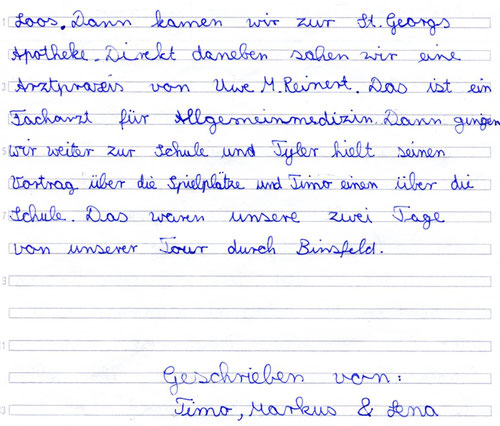 Loos. Dann kamen wir zur St. Georgs
Apotheke. Direkt daneben sahen wir eine
Arztpraxis von Uwe M. Reinert. Das ist ein
Facharzt für Allgemeinmedizin. Dann gingen
wir weiter zur Schule und Tyler hielt seinen
Vortrag über die Spielplätze und Timo einen über die
Schule. Das waren unsere zwei Tage
von unserer Tour durch Binsfeld.
Geschrieben von:
Timo, Markus & Lena